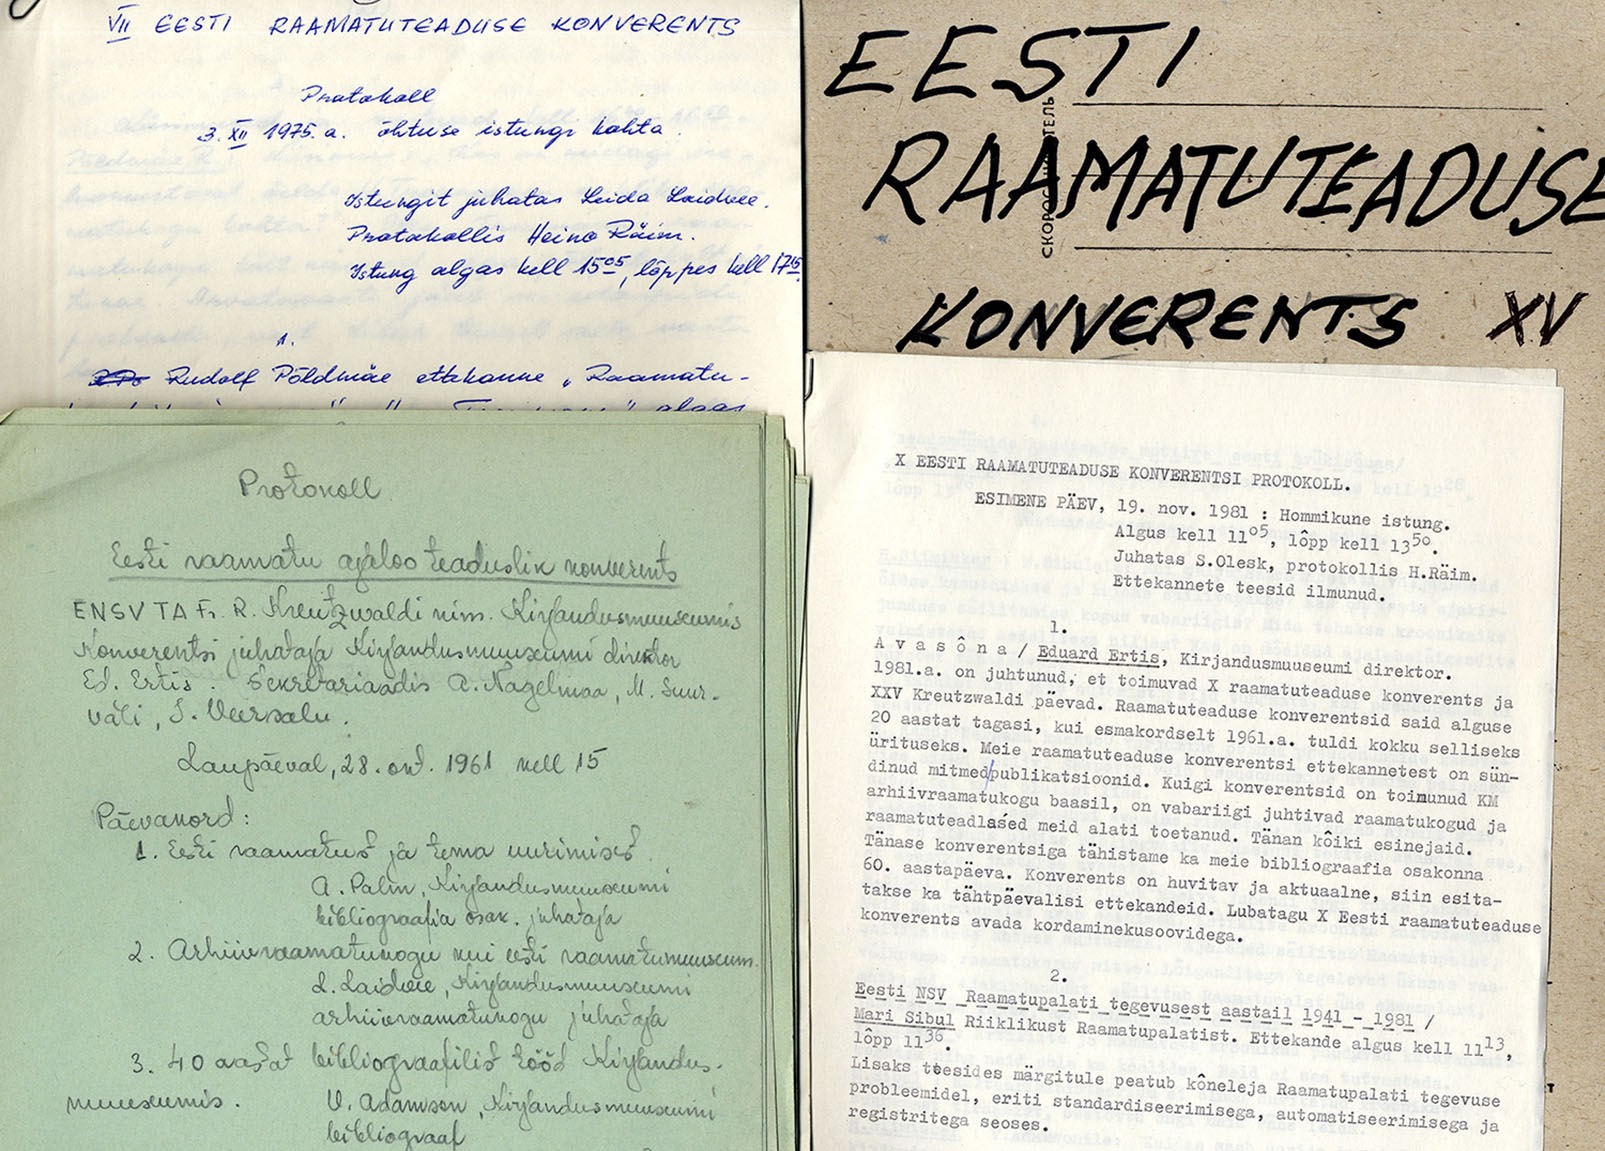 VII EESTI RAAMATUTEADUSE KONVERENTS
Protokoll
3. XII 1975. a. õhtuse istungi kohta.
Istungit juhatas Leida Laidvee.
Protokollis Heino Räim.
Istung algas kell 15⁰⁵, lõppes kell 17¹⁵
1.
Rudolf Põldmäe ettekanne „Raamatu-
algas
EESTI
RAAMATUTEADUSE
KONVERENTS XV
Protokoll
Eesti raamatu ajaloo teaduslik konverents
ENSV TA Fr. R. Kreutzwaldi nim. Kirjandusmuuseumis
Konverentsi juhataja Kirjandusmuuseumi direktor
Ed. Ertis. Sekretariaadis A. Nagelmaa, M. Suur-
väli, Veersalu.
Laupäeval, 28. okt. 1961 kell 15
Päevakord:
1. Eesti raamatust ja tema uurimisest.
A. Palm, Kirjandusmuuseumi
bibliograafia osak. juhataja
2. Arhiivraamatukogu kui eesti raamatumuuseum.
L. Laidvee, Kirjandusmuuseumi
arhiivraamatukogu juhataja
3. 40 aastat bibliograafilist tööd Kirjandus-
muuseumis. V. Adamson, Kirjandusmuuseumi
bibliograaf
X EESTI RAAMATUTEADUSE KONVERENTSI PROTOKOLL.
ESIMENE PÄEV, 19. nov. 1981 : Hommikune istung.
Algus kell 11⁰⁵, lôpp kell 13⁵⁰.
Juhatas S.Olesk, protokollis H.Räim.
Ettekannete teesid ilmunud.
1.
A v a s ô n a / Eduard Ertis, Kirjandusmuuseumi direktor.
1981.a. on juhtunud, et toimuvad X raamatuteaduse konverents ja
XXV Kreutzwaldi päevad. Raamatuteaduse konverentsid said alguse
20 aastat tagasi, kui esmakordselt 1961.a. tuldi kokku selliseks
ürituseks. Meie raamatuteaduse konverentsi ettekannetest on sün-
dinud mitmed/publikatsioonid. Kuigi konverentsid on toimunud KM
arhiivraamatukogu baasil, on vabariigi juhtivad raamatukogud ja
raamatuteadlased meid alati toetanud. Tänan kôiki esinejaid.
Tänase konverentsiga tähistame ka meie bibliograafia osakonna
60. aastapäeva. Konverents on huvitav ja aktuaalne, siin esita-
takse ka tähtpäevalisi ettekandeid. Lubatagu X Eesti raamatuteaduse
konverents avada kordaminekusoovidega.
2.
Eesti NSV Raamatupalati tegevusest aastail 1941 - 1981 /
Mari Sibul Riiklikust Raamatupalatist. Ettekande algus kell 11¹³,
lôpp 11³⁶.
Lisaks teesides märgitule peatub kôneleja Raamatupalati tegevuse
probleemidel, eriti standardiseerimisega, automatiseerimisega ja
registritega seoses.